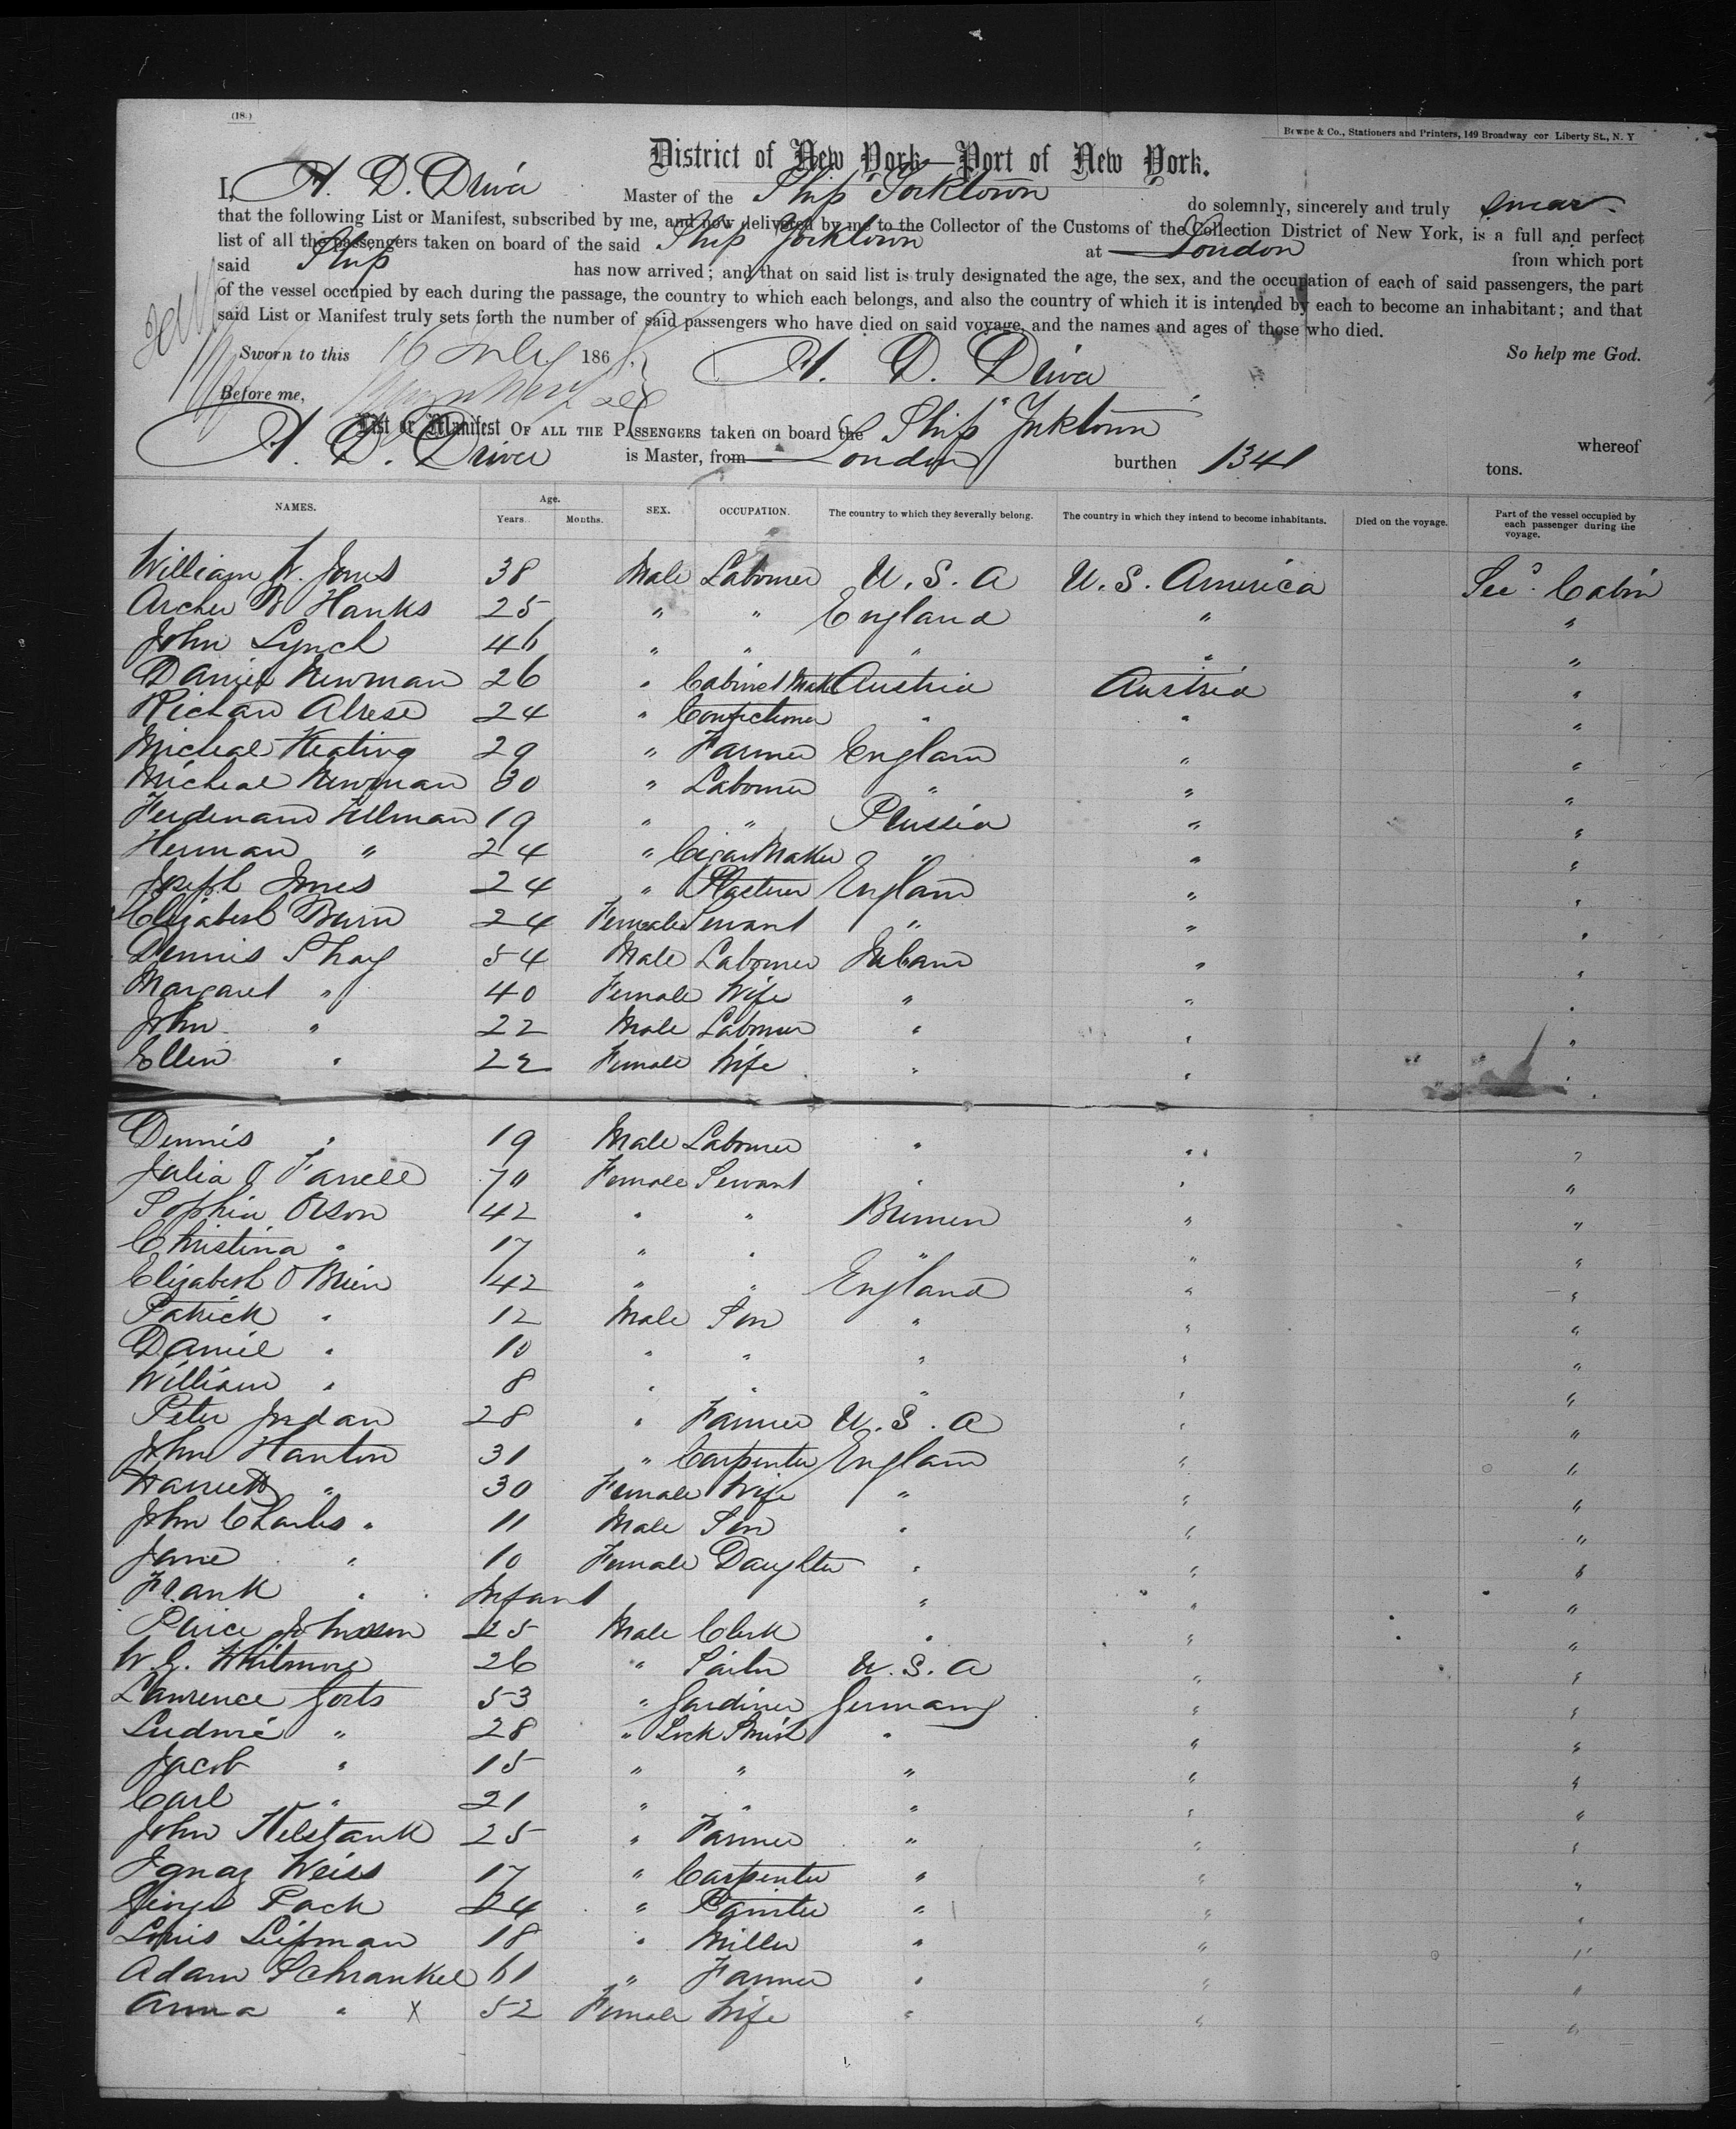 (18.)
Bowne & Co., Stationers and Printers, 149 Broadway cor. Liberty St., N. Y
District of New York—Port of New York.
I, A. D. Driver Master of the Ship Yorktown do solemnly, sincerely and truly swear
that the following List or Manifest, subscribed by me, and now delivered by me to the Collector of the Customs of the Collection District of New York, is a full and perfect
list of all the passengers taken on board of the said Ship Yorktown at London from which port
said Ship has now arrived; and that on said list is truly designated the age, the sex, and the occupation of each of said passengers, the part
of the vessel occupied by each during the passage, the country to which each belongs, and also the country of which it is intended by each to become an inhabitant; and that
said List or Manifest truly sets forth the number of said passengers who have died on said voyage, and the names and ages of those who died.
Sworn to this 16 July 186 A. D. Driver So help me God.
Before me,
List or Manifest OF ALL THE PASSENGERS taken on board the Ship Yorktown whereof
A. D. Driver is Master, from London burthen 1341 tons.
NAMES. Age. Years. Months. SEX. OCCUPATION. The country to which they severally belong. The country in which they intend to become inhabitants. Died on the voyage. Part of the vessel occupied by each passenger during the voyage.
William W. Jones 38 Male Laborer U. S. A U. S. America Sec. Cabin
Archer B Hanks 25 " " England " "
John Lynch 46 " " " " "
Daniel Newman 26 " Cabinet Mak Austria Austria "
Richard 24 " Confectioner " " "
Micheal Keating 29 " Farmer England " "
Micheal Newman 30 " Laborer " " "
Ferdenand Ullman 19 " " Prussia " "
Herman " 24 " Cigar Maker " " "
Joseph Jones 24 " Plasterer England " "
Elizabeth Burn 24 Female Servant " " "
Dennis Shay 54 Male Laborer Ireland " "
Margaret " 40 Female Wife " " "
John " 22 Male Laborer " " "
Ellen " 22 Female Wife " " "
Dennis " 19 Male Laborer " " "
Julia O Farrell 70 Female Servant " " "
Sophia Olson 42 " " Bremen " "
Christina " 17 " " " " "
Elizabeth O Brien 42 " " England " "
Patrick " 12 Male Son " " "
Daniel " 10 " " " " "
William " 8 " " " " "
Peter Jordan 28 " Farmer U. S. A " "
John Hanton 31 " Carpenter England " "
Harriett " 30 Female Wife " " "
John Charles " 11 Male Son " " "
Jane " 10 Female Daughter " " "
Frank " Infant " " "
Price Johnson 25 Male Clerk " " "
W. G. Whitmore 26 " Sailor U. S. A " "
Lawrence Gorts 53 " Gardiner Germany " "
Ludwie " 28 " Lock Smith " " "
Jacob " 15 " " " " "
Carl " 21 " " " " "
John Helstank 25 " Farmer " " "
Ignaz Weiss 17 " Carpenter " " "
George Pack 24 " Painter " " "
Louis Lipman 18 " Miller " " "
Adam Schrankel 61 " Farmer " " "
Anna " X 52 Female Wife " " "